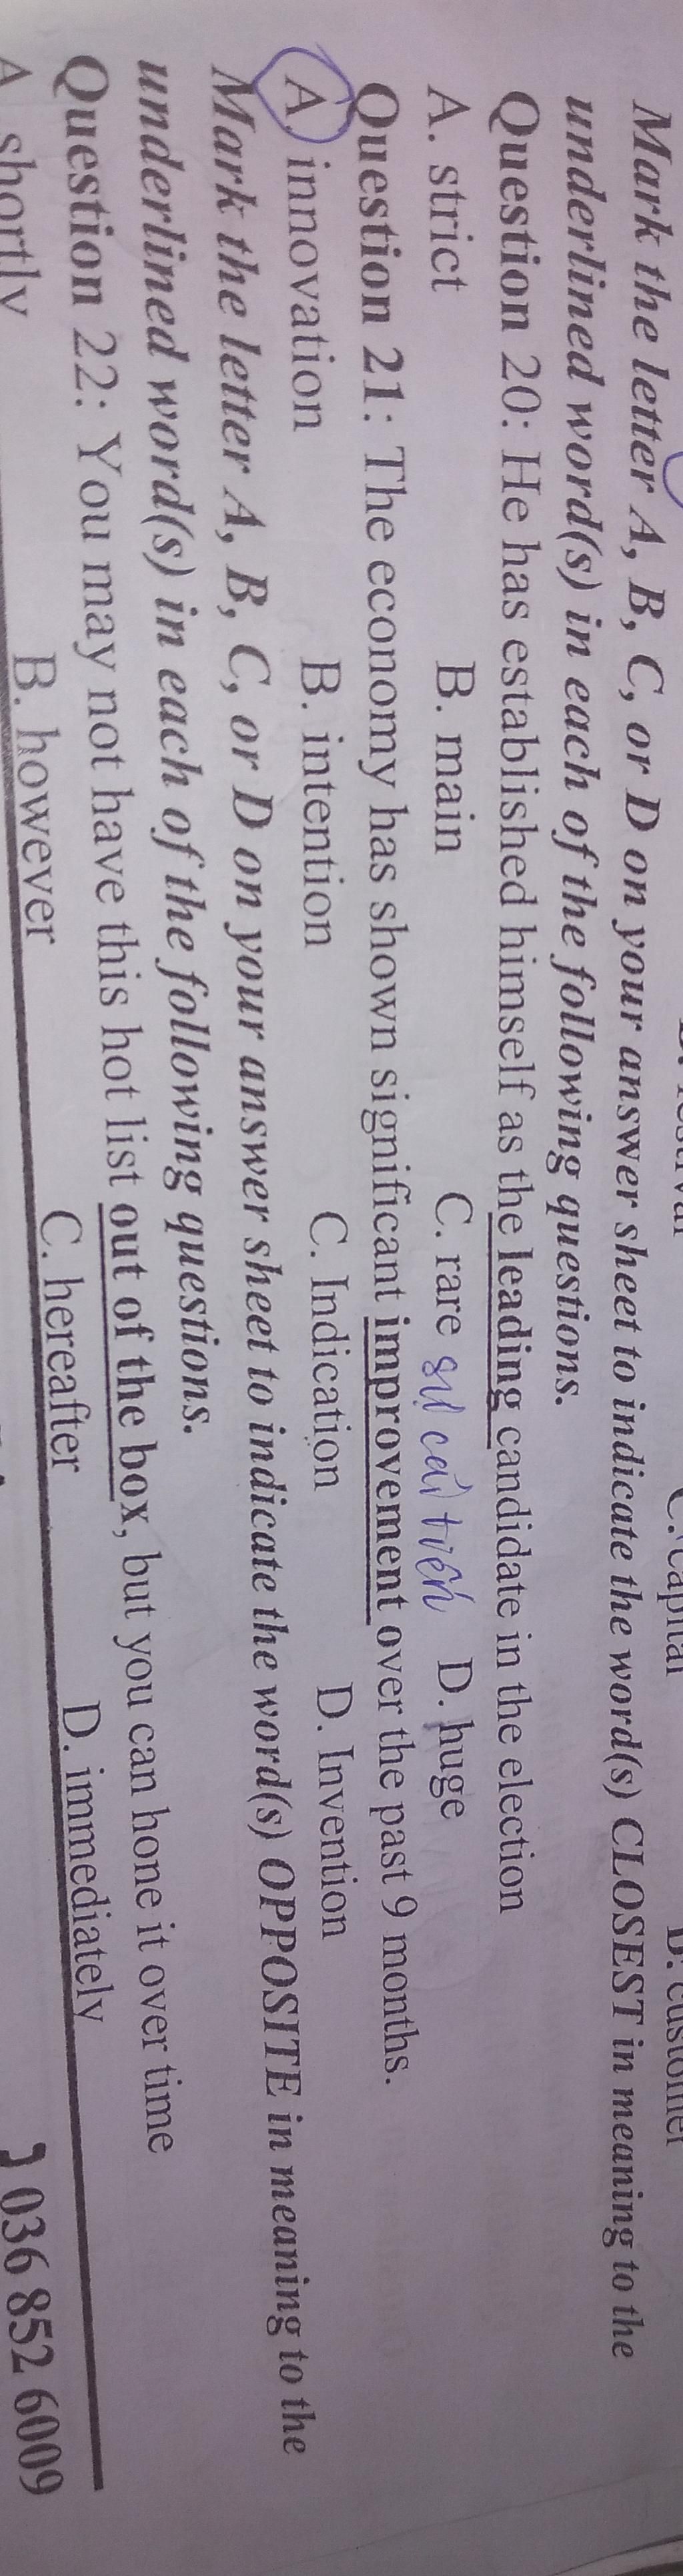 C. capital
D. customer
Mark the letter A, B, C, or D on your answer sheet to indicate the word(s) CLOSEST in meaning to the
underlined word(s) in each of the following questions.
Question 20: He has established himself as the leading candidate in the election
A. strict B. main C. rare D. huge
sự cải tiến
Question 21: The economy has shown significant improvement over the past 9 months.
A. innovation B. intention C. Indication D. Invention
Mark the letter A, B, C, or D on your answer sheet to indicate the word(s) OPPOSITE in meaning to the
underlined word(s) in each of the following questions.
Question 22: You may not have this hot list out of the box, but you can hone it over time
A. shortly B. however C. hereafter D. immediately
036 852 6009